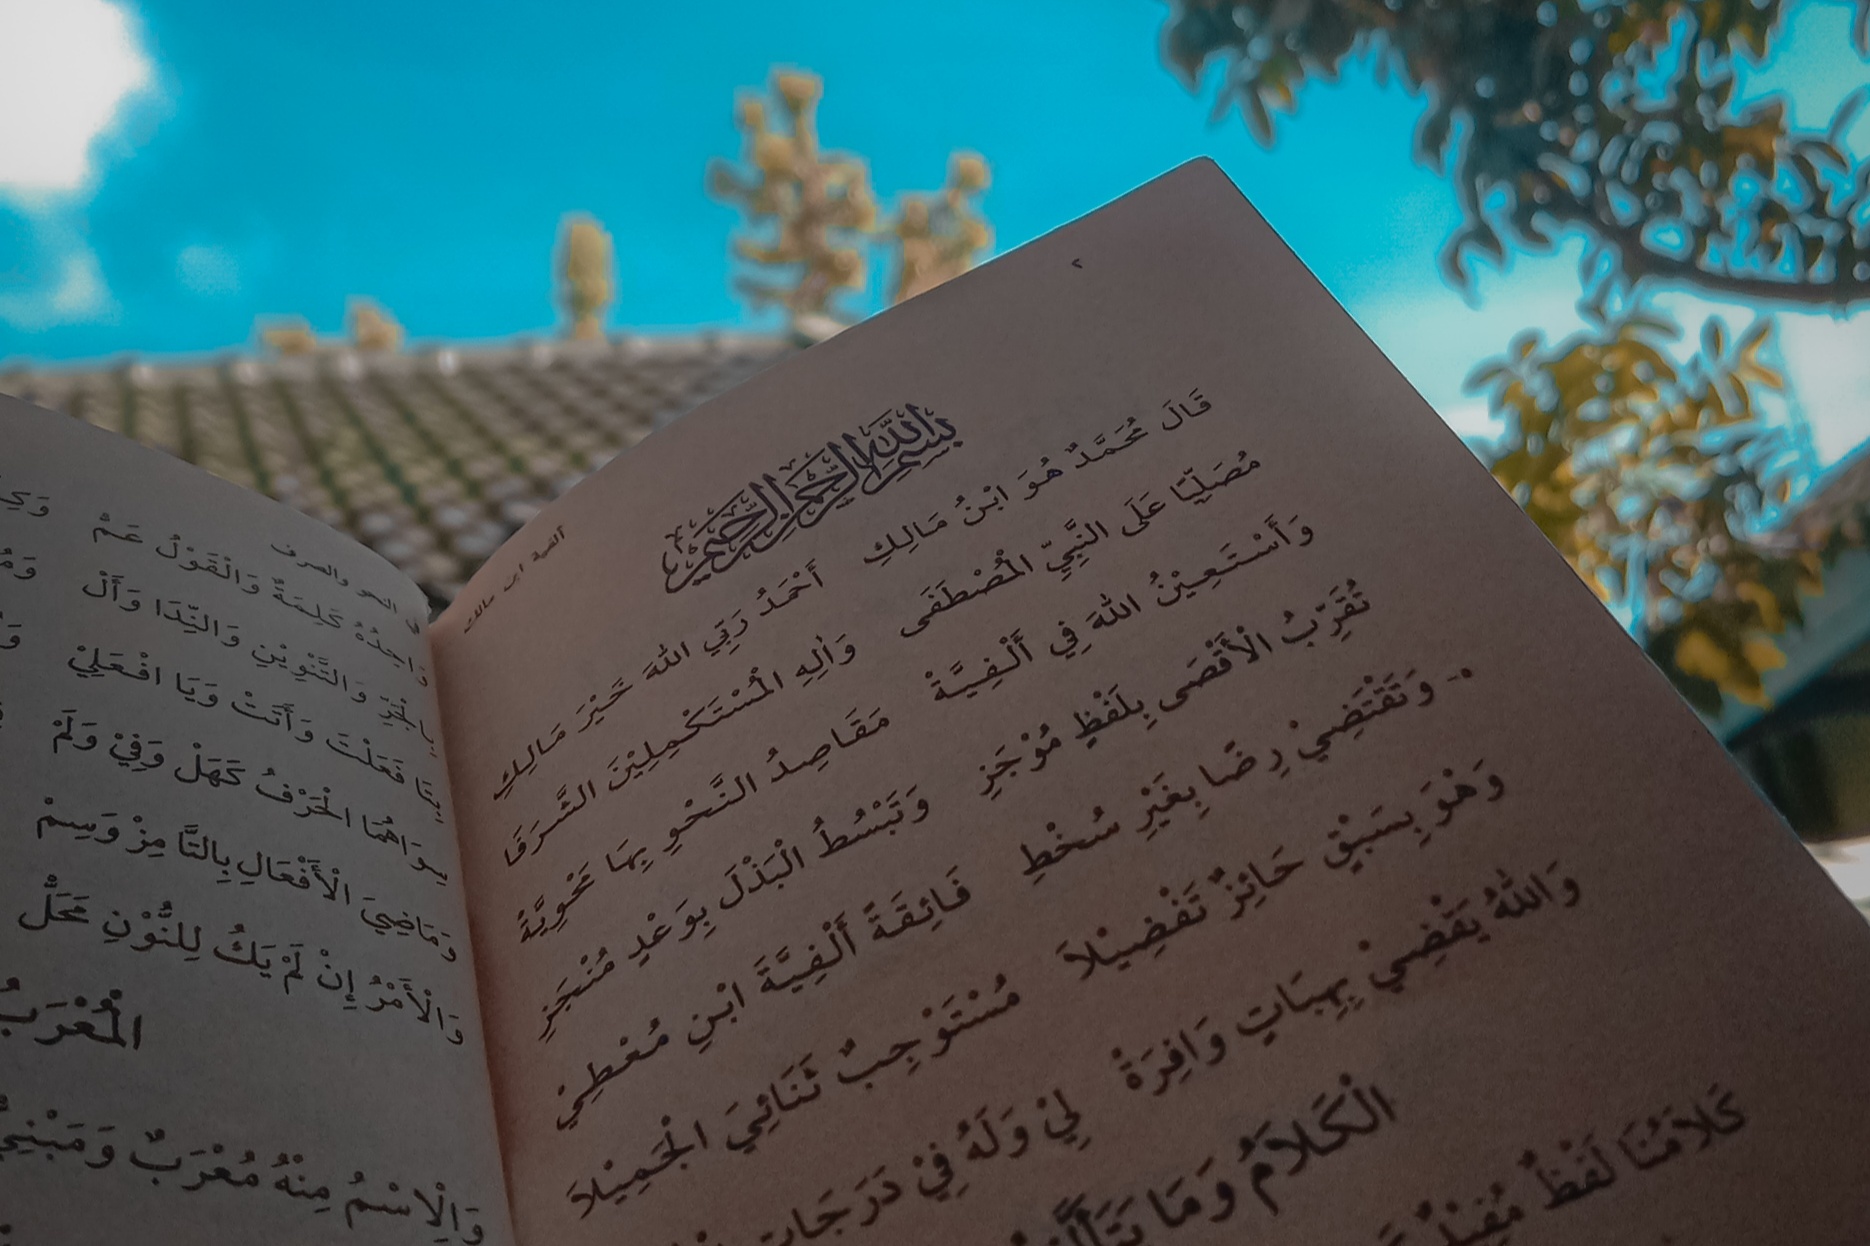 ٢
ألفية ابن مالك
بِسْمِ اللهِ الرَّحْمٰنِ الرَّحِيْمِ
قَالَ مُحَمَّدٌ هُوَ ابْنُ مَالِكِ أَحْمَدُ رَبِّي اللهَ خَيْرَ مَالِكِ
مُصَلِّيًا عَلَى النَّبِيِّ الْمُصْطَفَى وَاٰلِهِ الْمُسْتَكْمِلِيْنَ الشَّرَفَا
وَأَسْتَعِيْنُ اللهَ فِي أَلْفِيَّةْ مَقَاصِدُ النَّحْوِ بِهَا مَحْوِيَّةْ
تُقَرِّبُ الْأَقْصَى بِلَفْظٍ مُوْجَزِ وَتَبْسُطُ الْبَذْلَ بِوَعْدٍ مُنْجَزِ
٥- وَتَقْتَضِيْ رِضًا بِغَيْرِ سُخْطِ فَائِقَةً أَلْفِيَّةَ ابْنِ مُعْطِيْ
وَهْوَ بِسَبْقٍ حَائِزٌ تَفْضِيْلاَ مُسْتَوْجِبٌ ثَنَائِيَ الْجَمِيْلاَ
وَاللهُ يَقْضِيْ بِهِبَاتٍ وَافِرَةْ لِيْ وَلَهُ فِيْ دَرَجَاتِ
الْكَلاَمُ وَمَا يَتَأَلَّفُ
كَلاَمُنَا لَفْظٌ مُفِيْدٌ
النحو والصرف
وَاحِدُهُ كَلِمَةٌ وَالْقَوْلُ عَمّْ
بِالْجَرِّ وَالتَّنْوِيْنِ وَالنِّدَا وَأَلْ
بِتَا فَعَلْتَ وَأَتَتْ وَيَا افْعَلِيْ
سِوَاهُمَا الْحَرْفُ كَهَلْ وَفِيْ وَلَمْ
وَمَاضِيَ الْأَفْعَالِ بِالتَّا مِزْ وَسِمْ
وَالْأَمْرُ إِنْ لَمْ يَكُ لِلنُّوْنِ مَحَلّْ
الْمُعْرَبُ
وَالْاِسْمُ مِنْهُ مُعْرَبٌ وَمَبْنِيْ